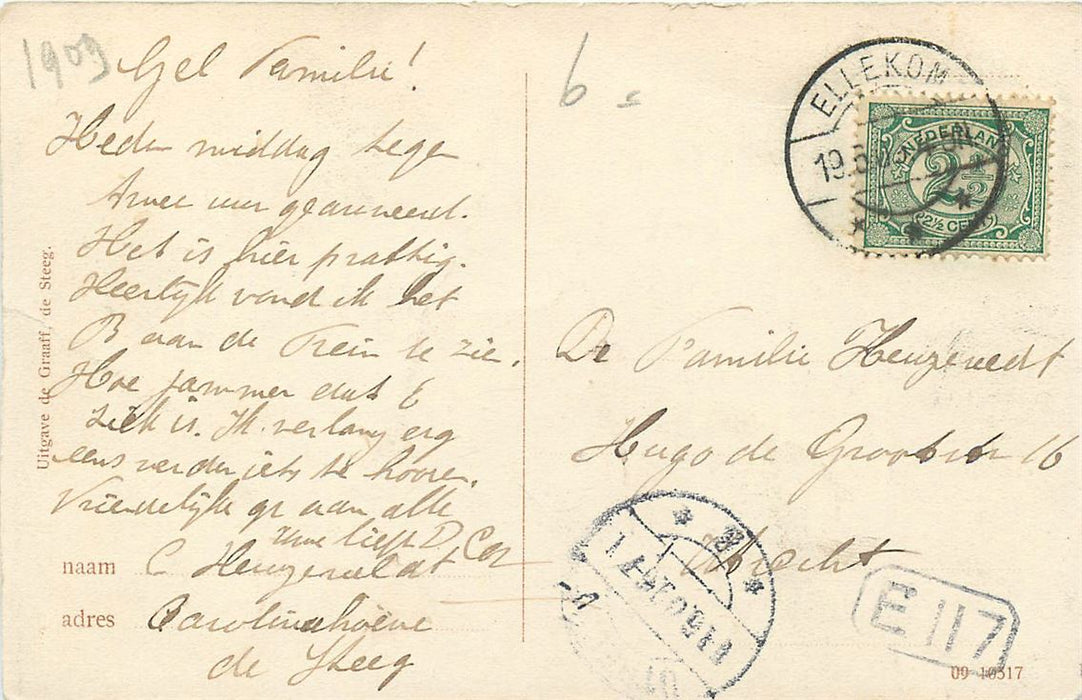 1909
Gel Familie!
Heden middag tegen
twee uur gearriveerd.
Het is hier prattig.
Heerlijk vond ik het
B aan de trein te zien.
Hoe jammer dat E
ziek is. Ik verlang erg
eens verder iets te hooren.
Vriendelijk gr aan alle
Uwe liefh D Cor
naam C Heuzeveldt
adres Carolinahoeve
de Steeg
Uitgave de Graaff, de Steeg.
6 =
ELLEKOM
19.5
NEDERLAND
2½
2½ CENT
De Familie Heuzeveldt
Hugo de Grootstr 16
Utrecht
E 117
09 10517